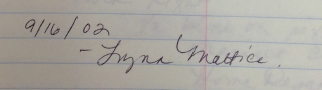 9/16/02
- Lynn Mattice.